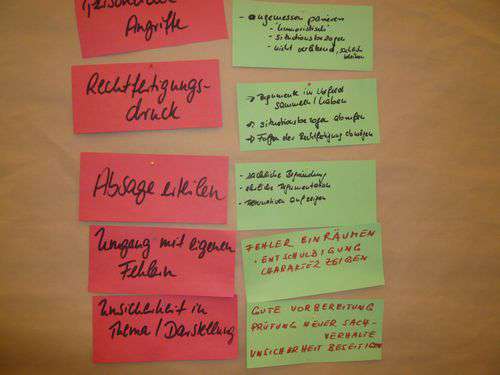 Persönliche
Angriffe
- angemessen parieren
- humoristisch
- situationsbezogen
- nicht verletzend, sachlich
bleiben
Rechtfertigungs-
druck
→ Argumente im Vorfeld
sammeln / haben
→ situationsbezogen abrufen
→ Folgen der Rechtfertigung
Absage erteilen
- sachliche Begründung
- ehrliche Argumentation
- Alternativen aufzeigen
Umgang mit eigenen
Fehlern
FEHLER EINRÄUMEN
- ENTSCHULDIGUNG
CHARAKTER ZEIGEN
Unsicherheit in
Thema / Darstellung
GUTE VORBEREITUNG
PRÜFUNG NEUER SACH-
VERHALTE
UNSICHERHEIT BESEITIGEN